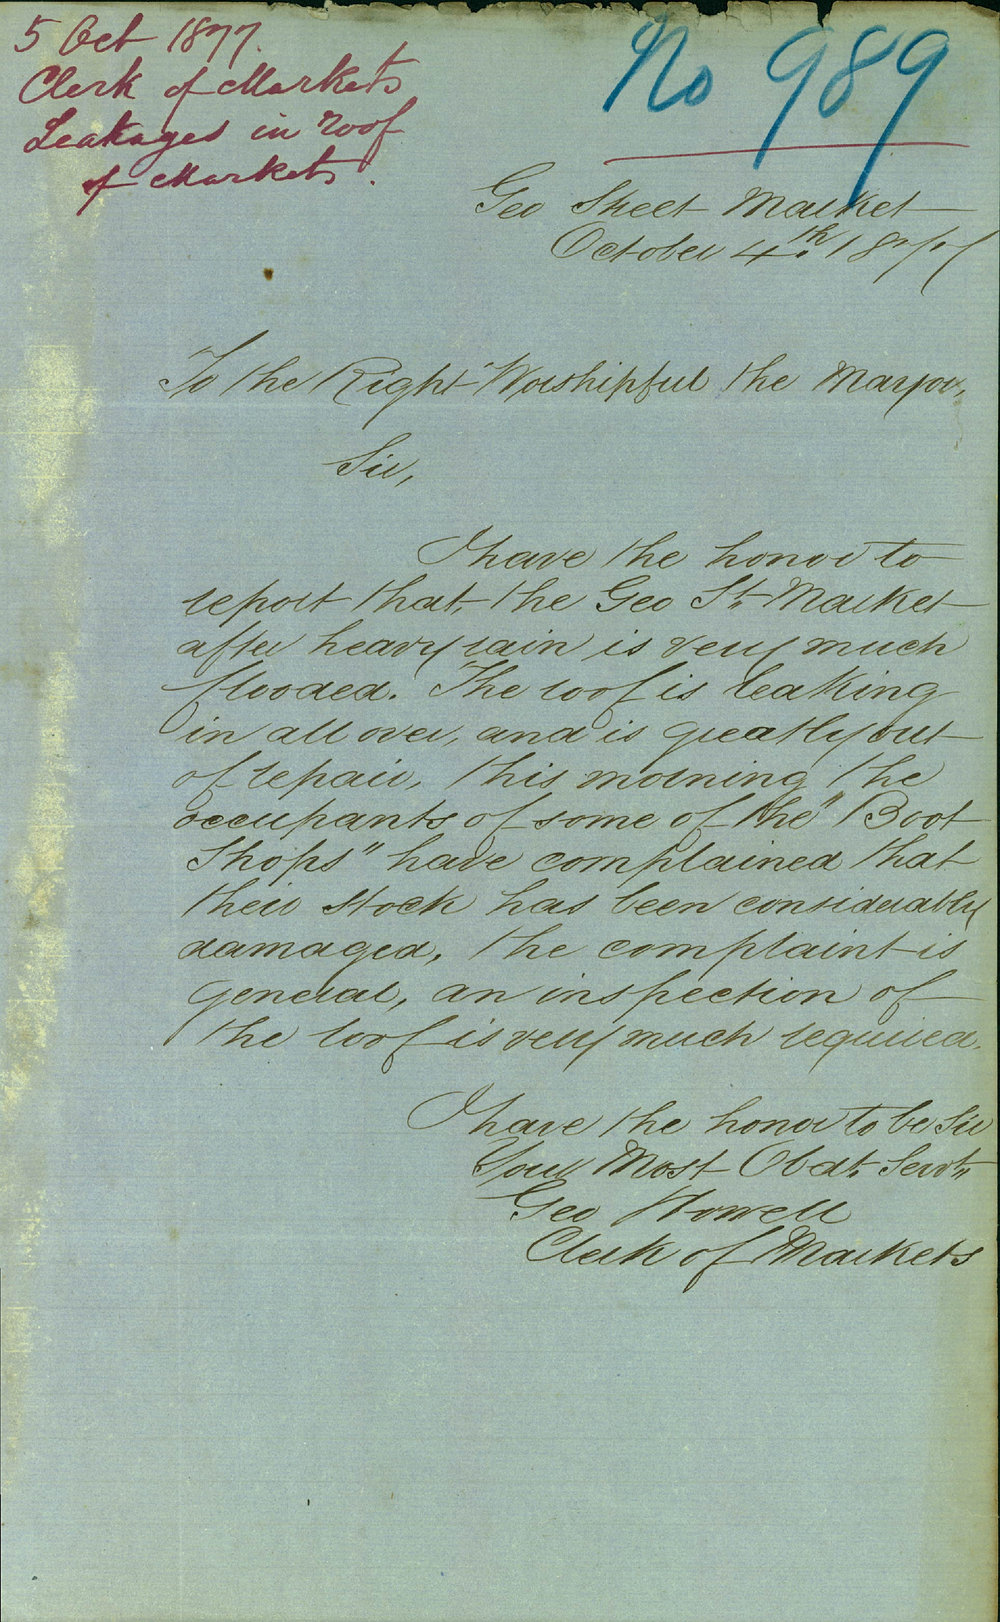 5 Oct 1877.
Clerk of Markets
Leakages in roof
of Markets.
No 989
Geo Street Market
October 4th. 1877
To the Right Worshipful the Mayor,
Sir,
I have the honor to
report that, the Geo St. Market
after heavy rain is very much
flooded. The roof is leaking
in all over, and is greatly out
of repair, this morning the
occupants of some of the "Boot
Shops" have complained that
their stock has been considerably
damaged, the complaint is
general, an inspection of
the roof is very much required.
I have the honor to be Sir
Your Most Obdt. Servt.
Geo Howell
Clerk of Markets